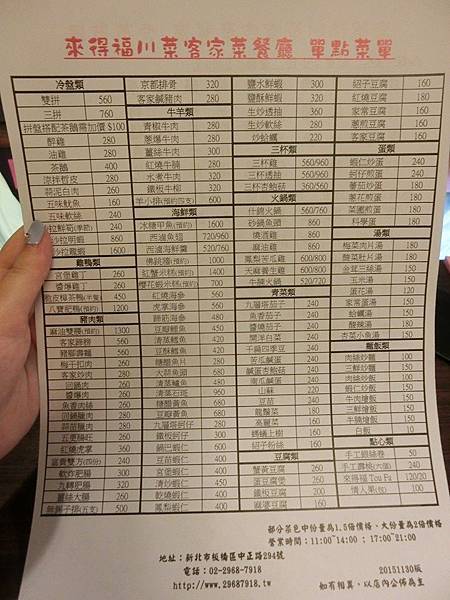 來得福川菜客家菜餐廳 單點菜單
冷盤類
雙拼 560
三拼 760
拼盤搭配茶鵝需加價$100
醉雞 280
油雞 280
茶鵝 350
涼拌哲皮 280
蒜泥白肉 260
五味魷魚 160
五味軟絲 240
沙拉鮮筍(季節) 240
沙拉明蝦 860
沙拉龍蝦 1600
雞鴨類
宮保雞丁 260
醬爆雞丁 260
樟茶鴨(半隻) 450
八寶肥鴨(預約) 1200
豬肉類
麻油雙腰(預約) 1300
客家蹄膀 560
豬腳壽麵 560
梅干扣肉 260
客家炒肉 260
回鍋肉 260
醬爆肉 260
魚香肉絲 260
回鍋臘肉 280
蒜苗臘肉 280
五更腸旺 260
紅燒虎掌 360
富貴雙方(四份) 240
軟炸肥腸 320
九轉肥腸 320
薑絲大腸 260
無錫子排(五支) 500
京都排骨 320
客家鹹豬肉 280
牛羊類
青椒牛肉 280
蔥爆牛肉 280
薑絲牛肉 300
紅燒牛腩 280
水煮牛肉 320
鐵板牛柳 320
羊小排(預約)(五支) 600
海鮮類
冰糖甲魚(預約)
西滷魚翅 720/960
西滷海鮮羹 520/760
佛跳牆(預約) 1600
紅蟹米糕(預約)
櫻花蝦米糕(預約)
紅燒海參
虎掌海參
蹄筋海參
豆瓣鱈魚
清蒸鱈魚
豆酥鱈魚
糖醋魚片
大蒜魚頭
清蒸鱸魚
清蒸石斑
糖醋黃魚
豆瓣黃魚
九層塔蚵仔
鐵板蚵仔
鍋巴蝦仁
蒜茸蝦仁
宮保蝦仁
清炒蝦仁
乾燒蝦仁
鳳梨蝦仁
鹽水鮮蝦 300
鹽酥鮮蝦 320
生炒透抽 360
生炒軟絲 280
炒蛤蠣 220
三杯類
三杯雞 560/960
三杯透抽 560/960
三杯杏鮑菇 360/560
火鍋類
什錦火鍋 560/760
砂鍋魚頭 860
燒酒雞 860
麻油雞 860
鳳梨苦瓜雞 600/800
天麻養生雞 600/800
牛腩火鍋 520/720
青菜類
九層塔茄子
魚香茄子
醬燒茄子
開洋白菜
干鍋四季豆
苦瓜鹹蛋
鹹蛋杏鮑菇
南瓜鹹蛋
山蘇
豆苗
龍鬚菜
高麗菜
螞蟻上樹 160
紹子粉絲 160
豆腐類
蟹黃豆腐 260
蛋豆腐煲 260
鐵板豆腐 200
麻婆豆腐 160
紹子豆腐 160
紅燒豆腐 180
家常豆腐 160
蔥煎豆腐 160
客家豆腐 160
蛋類
蝦仁炒蛋 240
蚵仔煎蛋 240
蕃茄炒蛋 160
蔥花煎蛋 160
菜圃煎蛋 160
科學蛋 180
湯類
梅菜肉片湯 180
酸菜肚片湯 180
金茸三絲湯 150
玉米湯 150
蛋花湯 120
家常蛋湯 150
蛤蠣湯 150
酸辣湯 180
杏菜小魚湯 150
麵飯類
肉絲炒麵 100
三鮮炒麵 100
肉絲炒飯 100
蝦仁炒飯 100
牛肉燴飯 100
三鮮燴飯 100
牛腩燴飯 100
白飯 10
點心類
手工銀絲卷 50
手工壽桃(六個) 240
來得福 Tou Fa 120/20
情人果(包) 100
部分菜色中份量為1.5倍價格、大份量為2倍價格
營業時間：11:00~14:00 ; 17:00~21:00
地址：新北市板橋區中正路294號
電話：02-2968-7918
http://www.29687918.tw/
20151130版
如有相異，以店內公佈為主